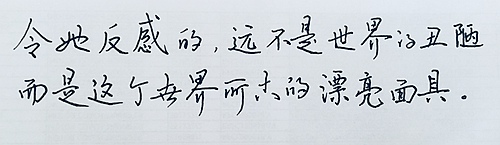 令她反感的,远不是世界的丑陋
而是这个世界所戴的漂亮面具。